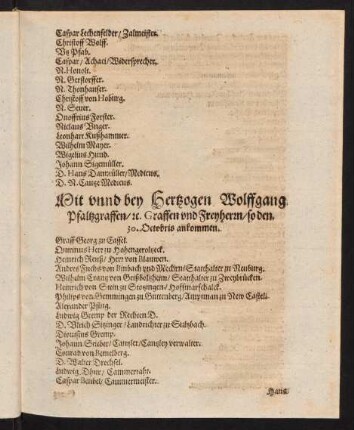 Caspar Lechenfelder / Zalmeister.
Christoff Wolff.
Vß Pfab.
Caspar / Achaci / Widersprecher.
N. Henolt.
N. Gerstorffer.
N. Thonhauser.
Christoff von Hobing.
N. Seuer.
Onoffrius Forster.
Niclaus Vnger.
Leonhart Kutzhammer.
Wilhelm Mayer.
Wigelius Hund.
Johann Sigenmüller.
D. Hans Danmüller / Medicus.
D. N. Cantze Medicus.
Mit vnnd bey Hertzogen Wolffgang
Pfaltzgraffen / ꝛc. Graffen vnd Freyherrn / so den
30. Octobris ankommen.
Graff Georg zu Castel.
Quirinus Herr zu Hohengeroltzeck.
Heinrich Reuß / Herr von Plauwen.
Andres Fuchs von Bimbach vnd Mecken / Statthalter zu Neuburg.
Wilhelm Crantz von Geißboltzheim / Statthalter zu Zweybrücken.
Heinrich von Stein zu Stotzingen / Hoffmarschalck.
Philips von Gemmingen zu Guttenberg / Amptman zu New Castell.
Alexander Pflug.
Ludwig Gremp der Rechten D.
D. Vlrich Sitzinger / Landrichter zu Sultzbach.
Dionysius Gremp.
Johann Stieber / Cantzler / Cantzley verwalter.
Conrad von Kemelberg.
D. Walter Drechsel.
Ludwig Thür / Cammerraht.
Caspar Beubel / Cammermeister.
Hans